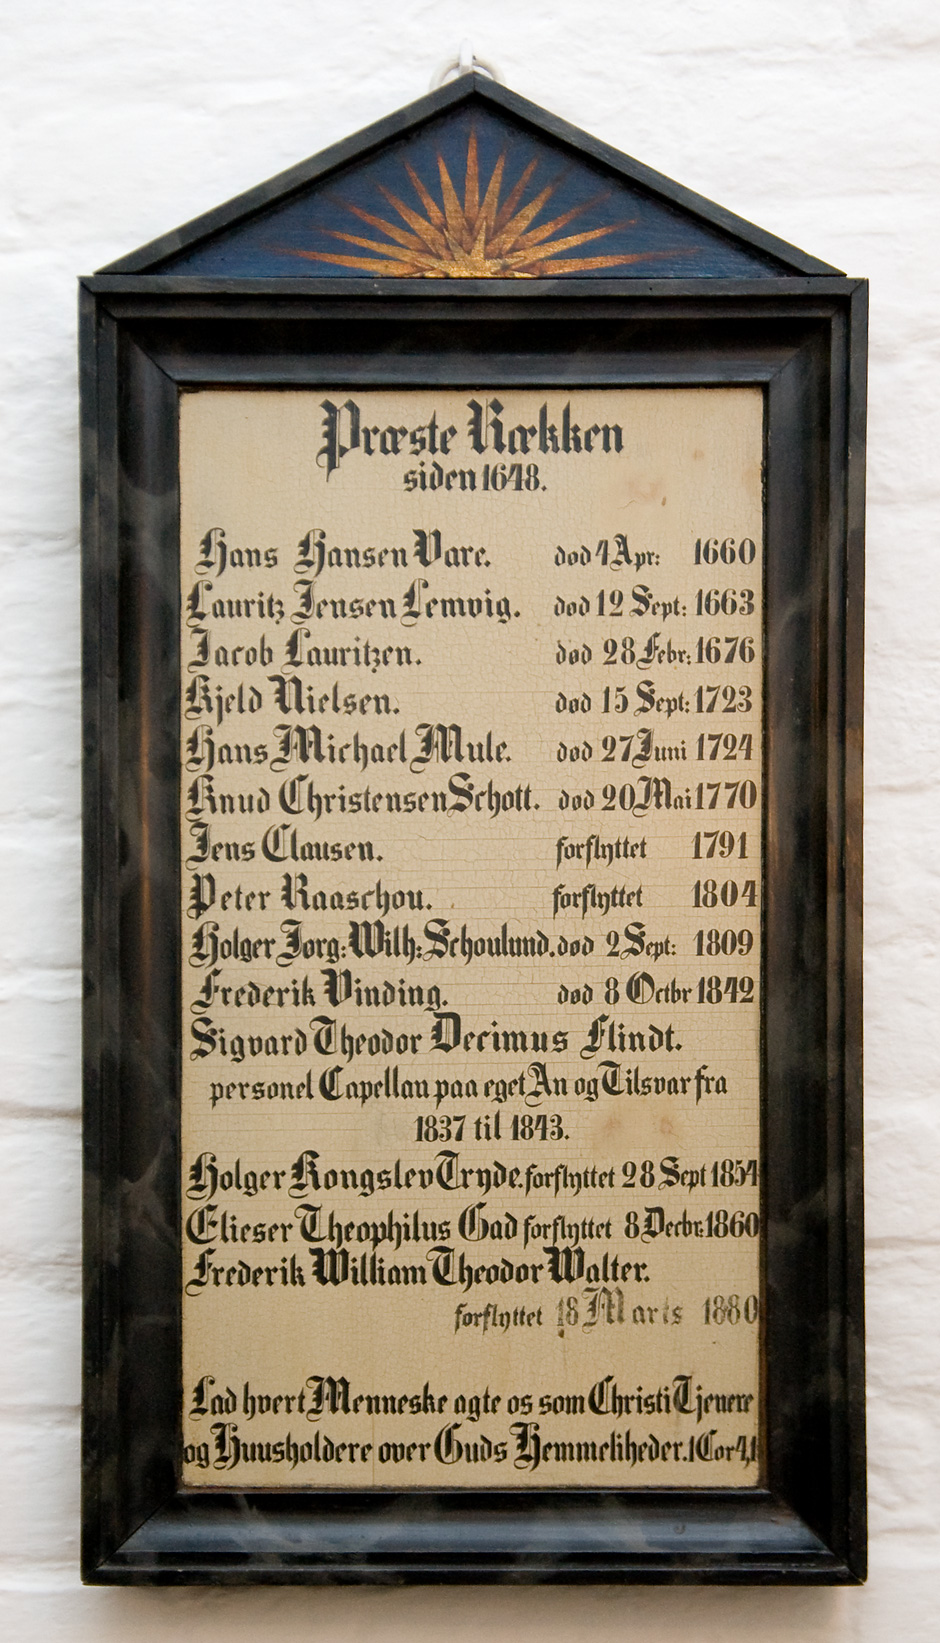 Præste Rækken
siden 1648.
Hans Hansen Vare. død 4 Apr: 1660
Lauritz Jensen Lemvig. død 12 Sept: 1663
Jacob Lauritzen. død 28 Febr: 1676
Kjeld Nielsen. død 15 Sept: 1723
Hans Michael Mule. død 27 Juni 1724
Knud Christensen Schott. død 20 Mai 1770
Jens Clausen. forflyttet 1791
Peter Raaschou. forflyttet 1804
Holger Jørg: Wilh: Schoulund. død 2 Sept: 1809
Frederik Vinding. død 8 Octbr 1842
Sigvard Theodor Decimus Flindt.
personel Capellan paa eget An og Tilsvar fra
1837 til 1843.
Holger Kongslev Tryde. forflyttet 28 Sept 1854
Elieser Theophilus Gad forflyttet 8 Decbr: 1860
Frederik William Theodor Walter.
forflyttet 18 Marts 1880
Lad hvert Menneske agte os som Christi Tjenere
og Huusholdere over Guds Hemmeliheder. 1 Cor 4,1